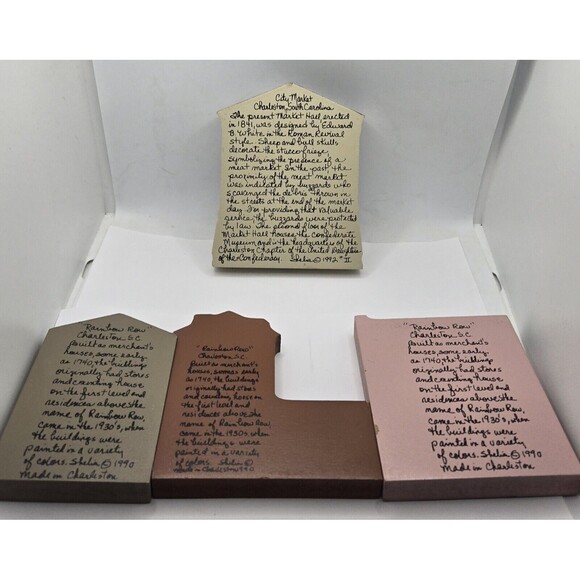 City Market
Charleston, South Carolina
The present Market Hall erected
in 1841, was designed by Edward
B. White in the Roman Revival
style. Sheep and bull skulls
decorate the stucco frieze,
symbolizing the presence of a
meat market. In the past, the
proximity of the meat market
was indicated by buzzards who
scavenged the debris thrown in
the streets at the end of the market
day. For providing that valuable
service, the buzzards were protected
by law. The second floor of the
Market Hall houses the Confederate
Museum, and is the headquarters of the
Charleston Chapter of the United Daughters
of the Confederacy. Shelia © 1992 " II
"Rainbow Row"
Charleston, S.C.
built as merchant's
houses, some early
as 1740, the buildings
originally had stores
and counting house
on the first level and
residences above. The
name of Rainbow Row,
came in the 1930's, when
the buildings were
painted in a variety
of colors. Shelia © 1990
made in Charleston
"Rainbow Row"
Charleston S.C.
built as merchant's
houses, some early
as 1740, the buildings
originally had stores
and counting house on
the first level and
residences above. The
name of Rainbow Row,
came in the 1930's, when
the buildings were
painted in a variety
of colors. Shelia ©
made in Charleston 1990
"Rainbow Row"
Charleston, S.C.
built as merchant's
houses, some early
as 1740, the buildings
originally had stores
and counting house
on the first level and
residences above. The
name of Rainbow Row,
came in the 1930's, when
the buildings were
painted in a variety
of colors. Shelia © 1990
made in Charleston